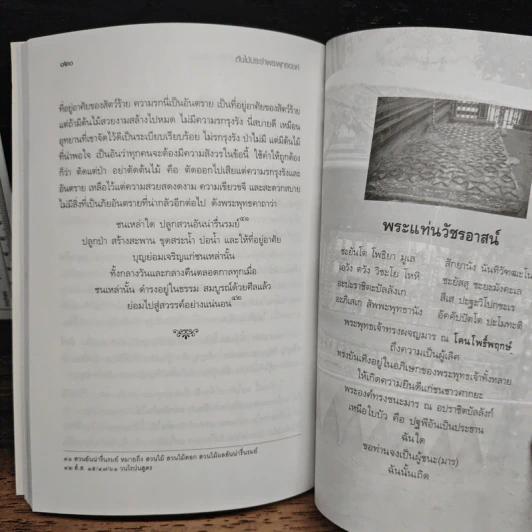 ๑๒๐
ต้นไม้ประจำพระพุทธองค์
ที่อยู่อาศัยของสัตว์ร้าย ความรกนี่เป็นอันตราย เป็นที่อยู่อาศัยของสัตว์ร้าย
แต่ถ้ามีต้นไม้สวยงามสล้างไปหมด ไม่มีความรกรุงรัง นี่สบายดี เหมือน
อุทยานที่เขาจัดไว้ดีเป็นระเบียบเรียบร้อย ไม่รกรุงรัง ป่าไม่มี แต่มีต้นไม้
ที่น่าพอใจ เป็นอันว่าทุกคนจะต้องมีความสังวรในข้อนี้ ใช้คำให้ถูกต้อง
ก็ว่า ตัดแต่ป่า อย่าตัดต้นไม้ คือ ตัดออกไปเสียแต่ความรกรุงรังและ
อันตราย เหลือไว้แต่ความสวยสดงดงาม ความเขียวขจี และสะดวกสบาย
ไม่มีสิ่งที่เป็นภัยอันตรายที่น่ากลัวอีกต่อไป ดังพระพุทธคาถาว่า
ชนเหล่าใด ปลูกสวนอันน่ารื่นรมย์๔๑
ปลูกป่า สร้างสะพาน ขุดสระน้ำ บ่อน้ำ และให้ที่อยู่อาศัย
บุญย่อมเจริญแก่ชนเหล่านั้น
ทั้งกลางวันและกลางคืนตลอดกาลทุกเมื่อ
ชนเหล่านั้น ดำรงอยู่ในธรรม สมบูรณ์ด้วยศีลแล้ว
ย่อมไปสู่สวรรค์อย่างแน่นอน๔๒
๔๑ สวนอันน่ารื่นรมย์ หมายถึง สวนไม้ สวนไม้ดอก สวนไม้ผลอันน่ารื่นรมย์
๔๒ สํ.ส. ๑๕/๔๗/๖๑ วนโรปนสูตร
พระแท่นวัชรอาสน์
ชะยันโต โพธิยา มูเล สักยานัง นันทิวัฑฒะโน
เอวัง ตวัง วิชะโย โหหิ ชะยัสสุ ชะยะมังคะเล
อะปะราชิตะปัลลังเก สีเส ปะฐะวิโปกขะเร
อะภิเสเก สัพพะพุทธานัง อัคคัปปัตโต ปะโมทะติ
พระพุทธเจ้าทรงผจญมาร ณ โคนโพธิ์พฤกษ์
ถึงความเป็นผู้เลิศ
ทรงบันเทิงอยู่ในอภิเษกของพระพุทธเจ้าทั้งหลาย
ให้เกิดความยินดีแก่ชนชาวศากยะ
พระองค์ทรงชนะมาร ณ อปราชิตบัลลังก์
เหนือใบบัว คือ ปฐพีอันเป็นประธาน
ฉันใด
ขอท่านจงเป็นผู้ชนะ(มาร)
ฉันนั้นเถิด